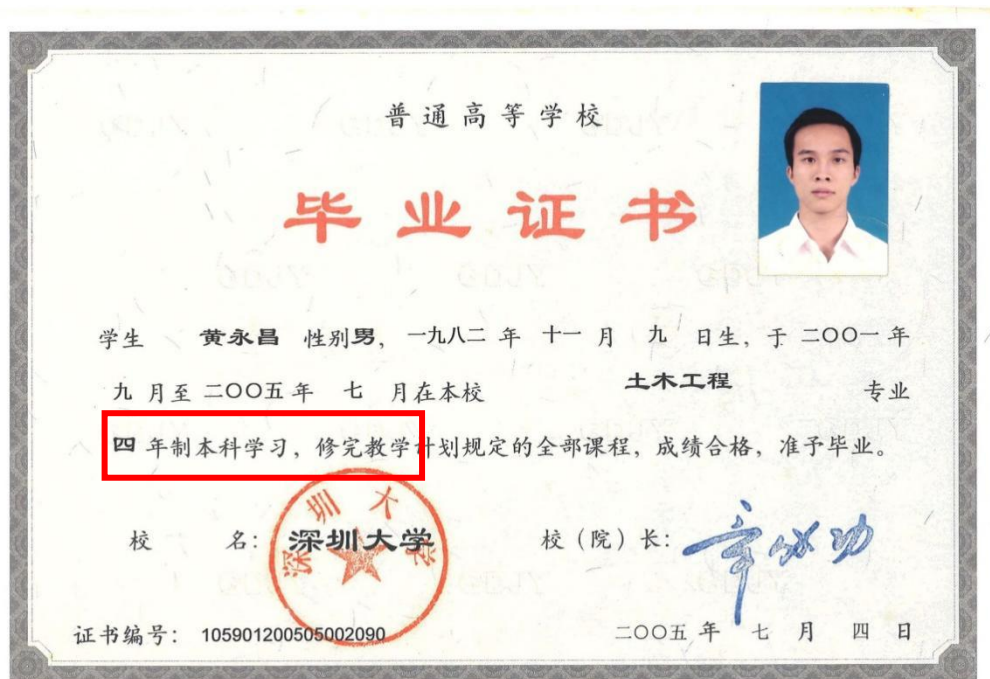 普通高等学校
毕业证书
学生 黄永昌 性别男，一九八二年十一月九日生，于二〇〇一年
九月至二〇〇五年七月在本校 土木工程 专业
四年制本科学习，修完教学计划规定的全部课程，成绩合格，准予毕业。
深圳大学
校 名：深圳大学 校（院）长：章必功
证书编号：105901200505002090 二〇〇五年七月四日